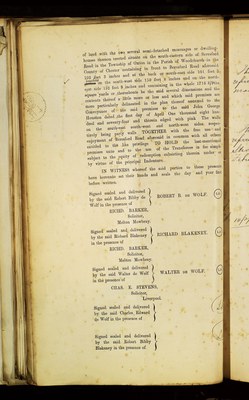 of land with the two several semi-detached messuages or dwelling-
houses thereon erected situate on the south-eastern side of Beresford
Road in the Township of Oxton in the Parish of Woodchurch in the
County of Chester containing in front to Beresford Road aforesaid
feet 9 inches and at the back or south-east side 161 feet
inches on the south-west side 124 feet 9 inches and on the north-
east side feet 8 inches and containing in the whole
square yards or thereabouts be the said several dimensions and the
contents thereof a little more or less and which said premises are
more particularly delineated in the plan thereof annexed to the
Conveyance of the said premises to the said John George
Houston dated the first day of April One thousand eight hun-
dred and seventy-four and therein edged with pink The walls
on the south-east south-west and north-east sides respec-
tively being party walls TOGETHER with the free use and
enjoyment of Beresford Road aforesaid in common with all others
entitled to the like privilege TO HOLD the last-mentioned
premises unto and to the use of the Transferees in fee simple
subject to the equity of redemption subsisting therein under or
by virtue of the principal Indenture
IN WITNESS whereof the said parties to these presents
have hereunto set their hands and seals the day and year first
before written
Signed sealed and delivered
by the said Robert Bibby de
Wolf in the presence of
ROBERT B. DE WOLF.
RICHD. BARKER,
Solicitor,
Melton Mowbray.
Signed sealed and delivered
by the said Richard Blakeney
in the presence of
RICHARD BLAKENEY.
RICHD. BARKER,
Solicitor,
Melton Mowbray.
Signed sealed and delivered
by the said Walter de Wolf
in the presence of
WALTER DE WOLF.
CHAS. E. STEVENS,
Solicitor,
Liverpool.
Signed sealed and delivered
by the said Charles Edward
de Wolf in the presence of
Signed sealed and delivered
by the said Robert Bibby
Blakeney in the presence of